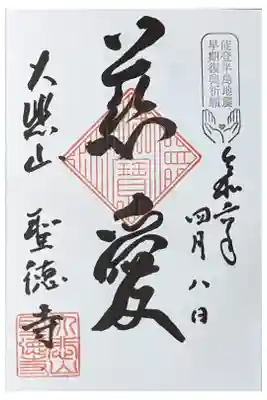 能登半島地震
早期復興祈願
令和六年
四月八日
慈愛
聖徳寺